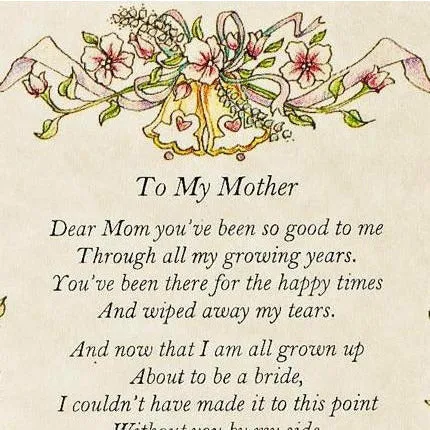 To My Mother
Dear Mom you've been so good to me
Through all my growing years.
You've been there for the happy times
And wiped away my tears.
And now that I am all grown up
About to be a bride,
I couldn't have made it to this point
Without you by my side